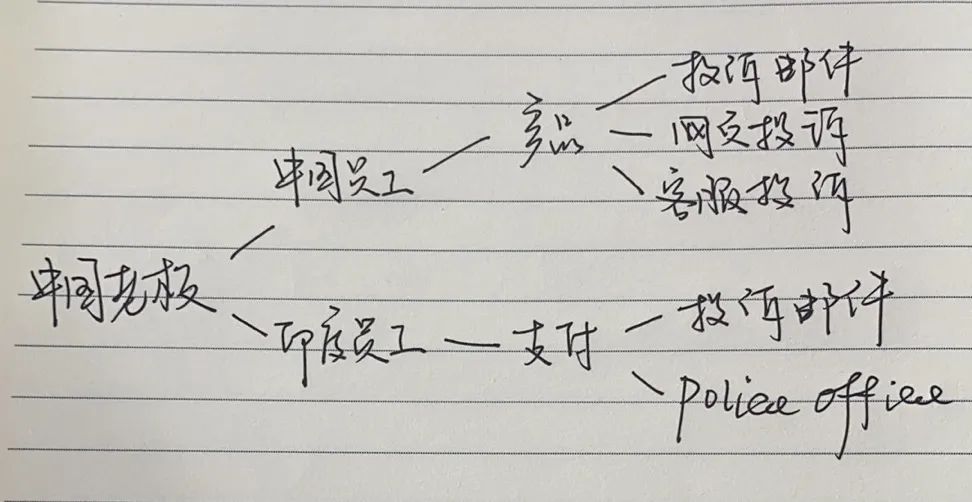 投诉邮件
产品
网交投诉
中国员工
客服投诉
中国老板
投诉邮件
印度员工
支付
police office